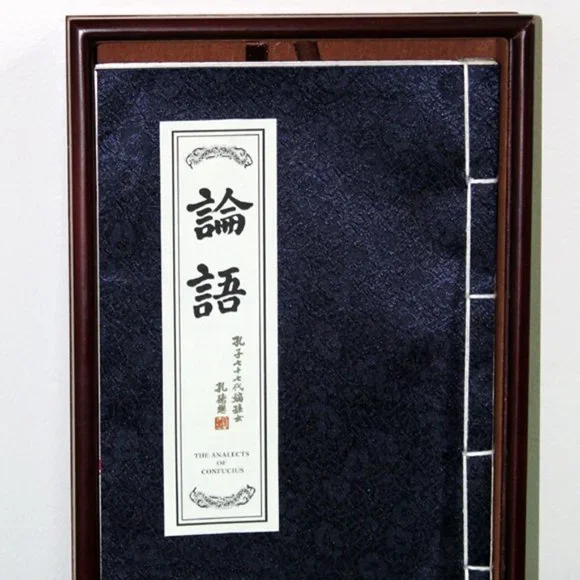 論語
孔子七十七代嫡孫女
孔德懋
THE ANALECTS
OF
CONFUCIUS